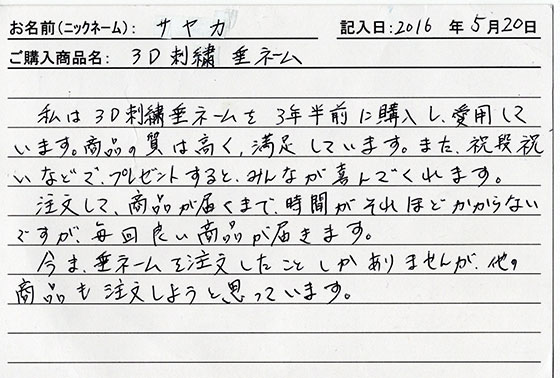 お名前(ニックネーム): サヤカ 記入日:2016 年 5月20日
ご購入商品名: 3D刺繍 垂ネーム
私は3D刺繍垂ネームを3年半前に購入し、愛用して
います。商品の質は高く、満足しています。また、祝段祝
いなどで、プレゼントすると、みんなが喜んでくれます。
注文して、商品が届くまで、時間がそれほどかからない
ですが、毎回良い商品が届きます。
今ま、垂ネームを注文したことしかありませんが、他の
商品も注文しようと思っています。